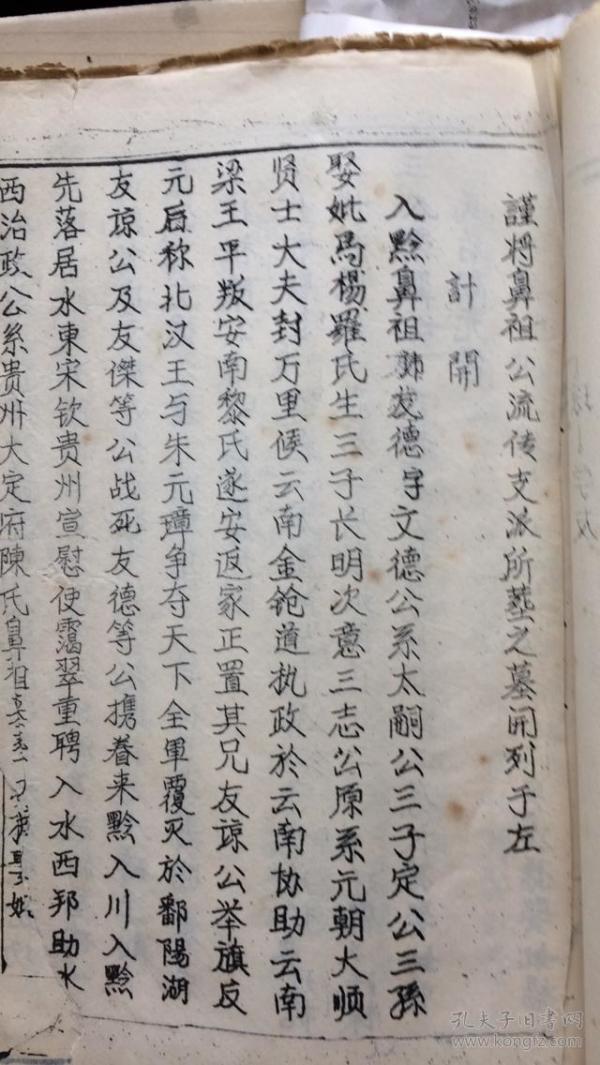 謹将鼻祖公流传支派所塟之墓開列于左
計開
入黔鼻祖友德字文德公系太嗣公三子定公三孫
娶妣馬楊羅氏生三子长明次意三志公原系元朝大顺
贤士大夫封万里侯云南金鎗道执政於云南协助云南
梁王平叛安南黎氏遂安返家正置其兄友谅公举旗反
元后称北汉王与朱元璋争夺天下全軍覆灭於鄱陽湖
友谅公及友傑等公战死友德等公携眷来黔入川入黔
先落居水東宋钦贵州宣慰使靄翠重聘入水西邦助水
西治政公系贵州大定府陳氏鼻祖
孔夫子旧书网
www.kongfz.com